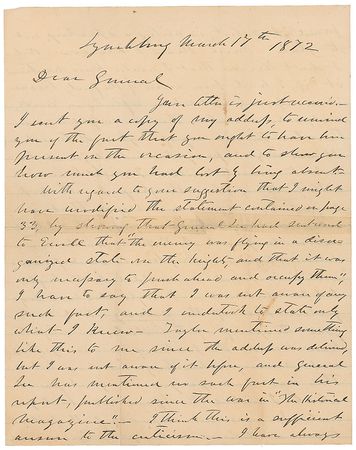 Lynchburg March 17th 1872
Dear General
Your letter is just received.—
I sent you a copy of my address, to remind
you of the fact that you ought to have been
present on the occasion, and to show you
how much you had lost by being absent.
With regard to your suggestion that I might
have modified the statement contained on page
33, by showing that General Lee had sent word
to Ewell that "the enemy was flying in a disor-
ganized state on the heights, and that it was
only necessary to push ahead and occupy them",
I have to say that I was not aware of any
such fact, and I undertook to state only
what I knew— Taylor mentioned something
like this to me since the address was delivered,
but I was not aware of it before, and General
Lee has mentioned no such fact in his
report, published since the war in "The Historical
Magazine".— I think this is a sufficient
answer to the criticism.— I have always